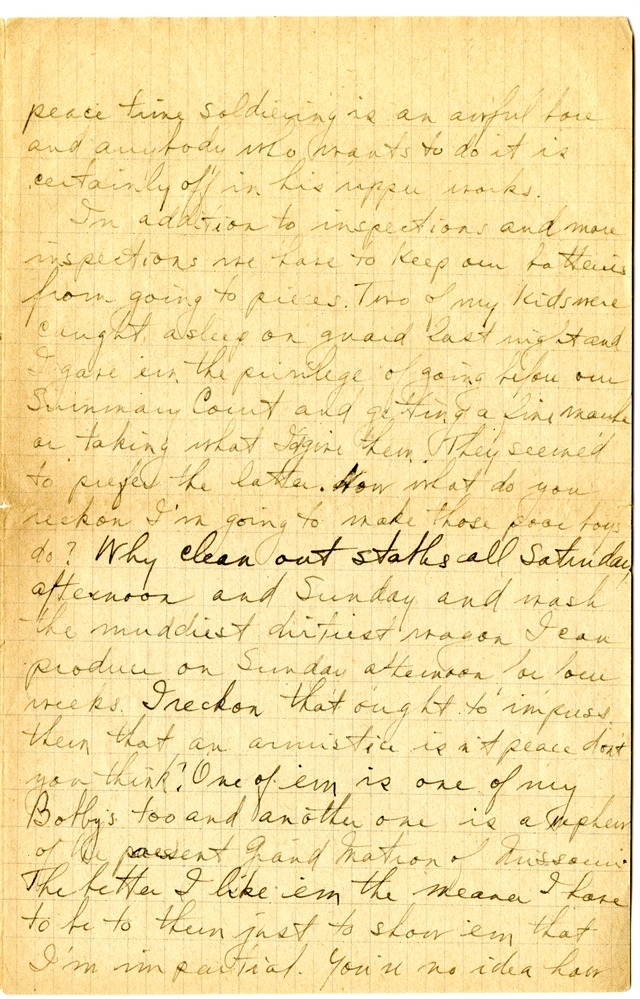 peace time soldiering is an awful bore
and anybody who wants to do it is
certainly off in his upper works.
In addition to inspections and more
inspections we have to keep our batteries
from going to pieces. Two of my kids were
caught asleep on guard last night and
I gave em the privilege of going before our
Summary Court and getting a fine maybe
or taking what I'd give them. They seemed
to prefer the latter. Now what do you
reckon I'm going to make those poor boys
do? Why clean out stables all Saturday
afternoon and Sunday and wash
the muddiest dirtiest wagon I can
produce on Sunday afternoon for four
weeks. I reckon that ought to impress
them that an armistice isn't peace don't
you think? One of em is one of my
Bobby's too and another one is a nephew
of the present Grand Matron of Missouri.
The better I like em the meaner I have
to be to them just to show em that
I'm impartial. You've no idea how